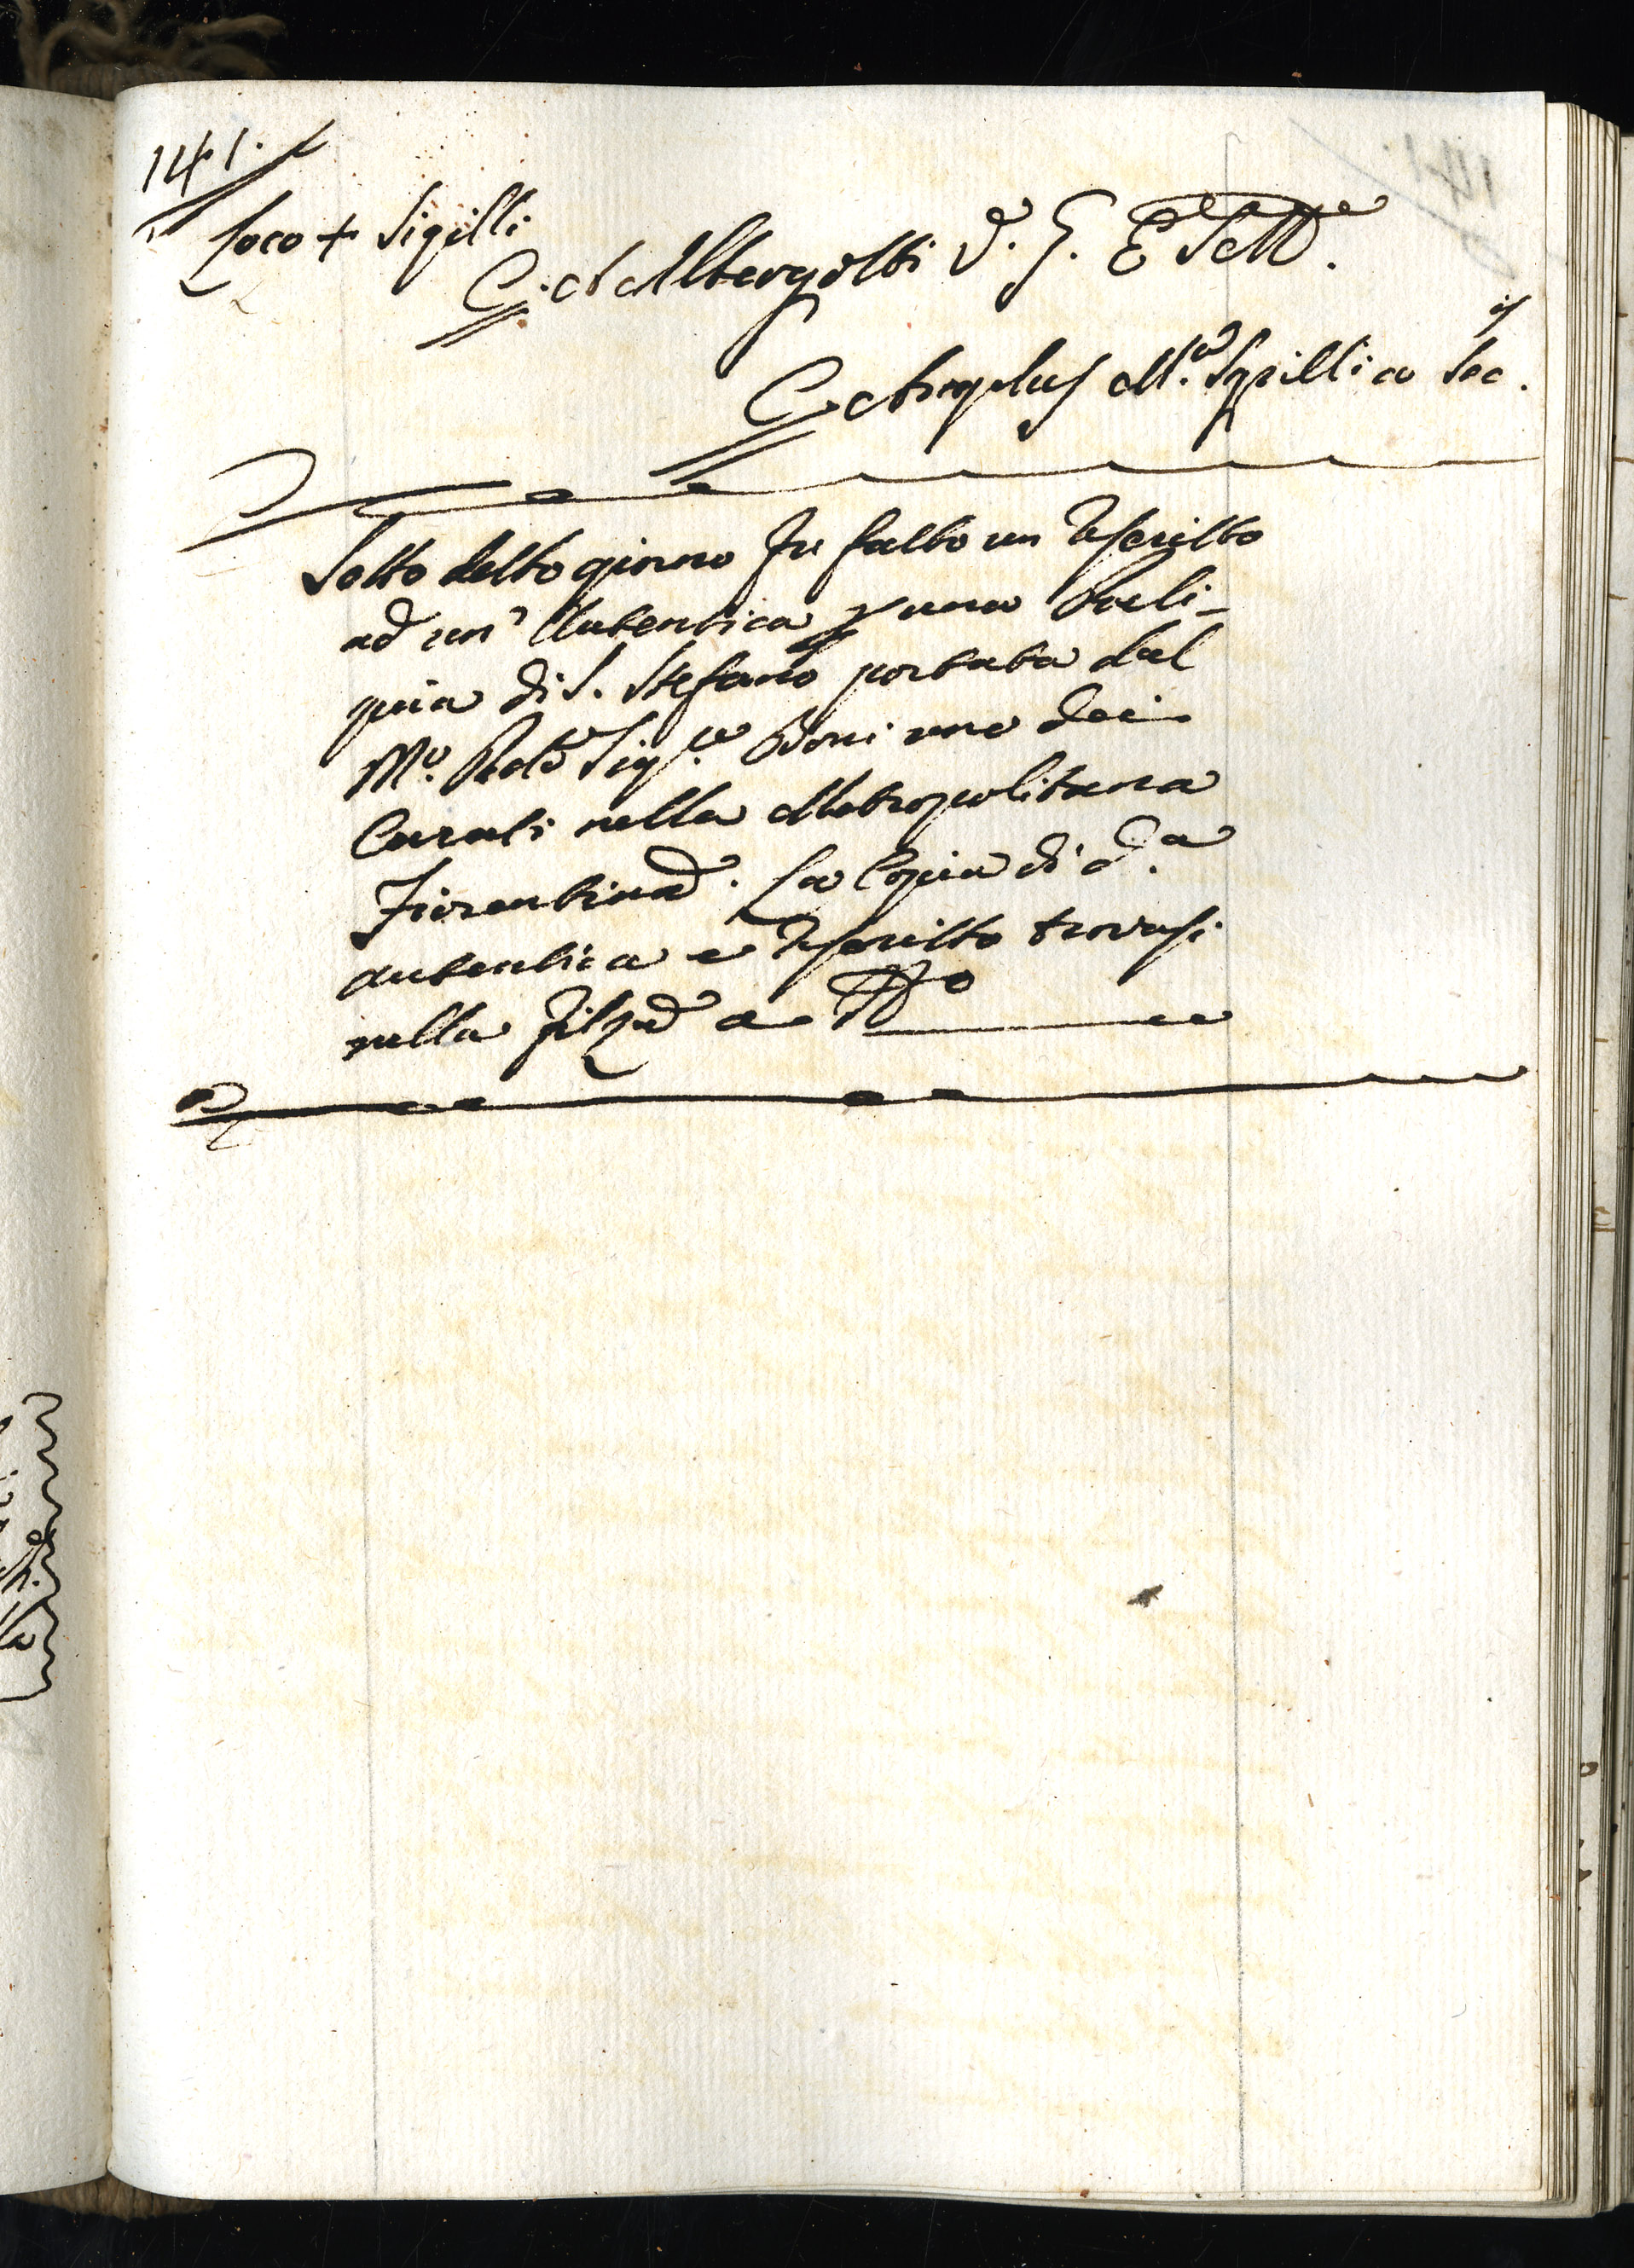 141.
Loco + Sigilli
C. A Albergotti V. G. E
C Angelus M.a Sgrilli a Sec.is
Sotto detto giorno fu fatto un Rescritto
ad un' Autentica p una Reli-
quia di S. Stefano portata dal
M.o Rdo Sig.re Boni uno dei
Curati nella Metropolitana
Fiorentina. La Copia di d.a
autentica e Rescritto trovasi
nella Filza a